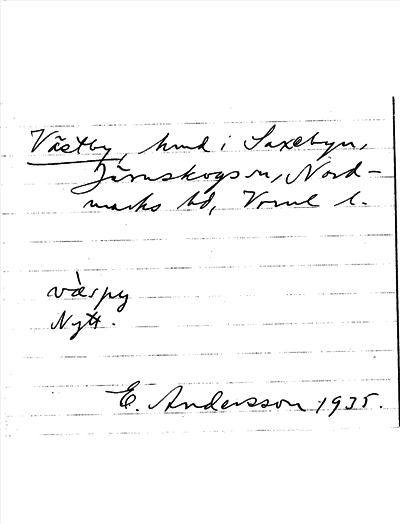 Västby, hmd i Saxebyn,
Järnskogs sn, Nord-
marks hd, Vrml l.
vàspy
Nytt.
E. Andersson 1935.